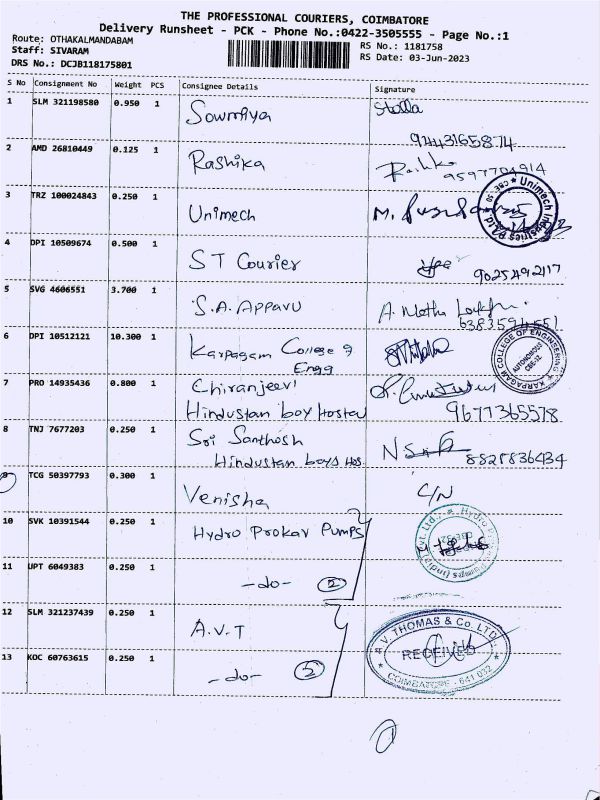 THE PROFESSIONAL COURIERS, COIMBATORE
Delivery Runsheet - PCK - Phone No.:0422-3505555 - Page No.:1
Route: OTHAKALMANDABAM RS No.: 1181758
Staff: SIVARAM RS Date: 03-Jun-2023
DRS No.: DCJB118175801
S No Consignment No Weight PCS Consignee Details Signature
1 SLM 321198580 0.950 1 Sowmiya Stella
9443165874
2 AMD 26810449 0.125 1 Rashika
9597704914
3 TRZ 100024843 0.250 1 Unimech M.
Unimech Industries
4 DPI 10509674 0.500 1 ST Courier 9025492117
5 SVG 4606551 3.700 1 S.A. Appavu A.
6 DPI 10512121 10.300 1 Karpagam College of
Engg
KARPAGAM COLLEGE OF ENGINEERING
AUTONOMOUS
CBE-32
7 PRO 14935436 0.800 1 Chiranjeevi
Hindustan boy Hostel 9677365578
8 TNJ 7677203 0.250 1 Sri Santhosh
Hindustan boys Hos. 8827836434
9 TCG 50397793 0.300 1 Venisha C/N
10 SVK 10391544 0.250 1 Hydro Prokav Pumps
11 UPT 6049383 0.250 1 -do- 2
12 SLM 321237439 0.250 1 A.V.T
A.V. THOMAS & Co. LTD.
RECEIVED
COIMBATORE - 641 032
13 KOC 60763615 0.250 1 -do- 5